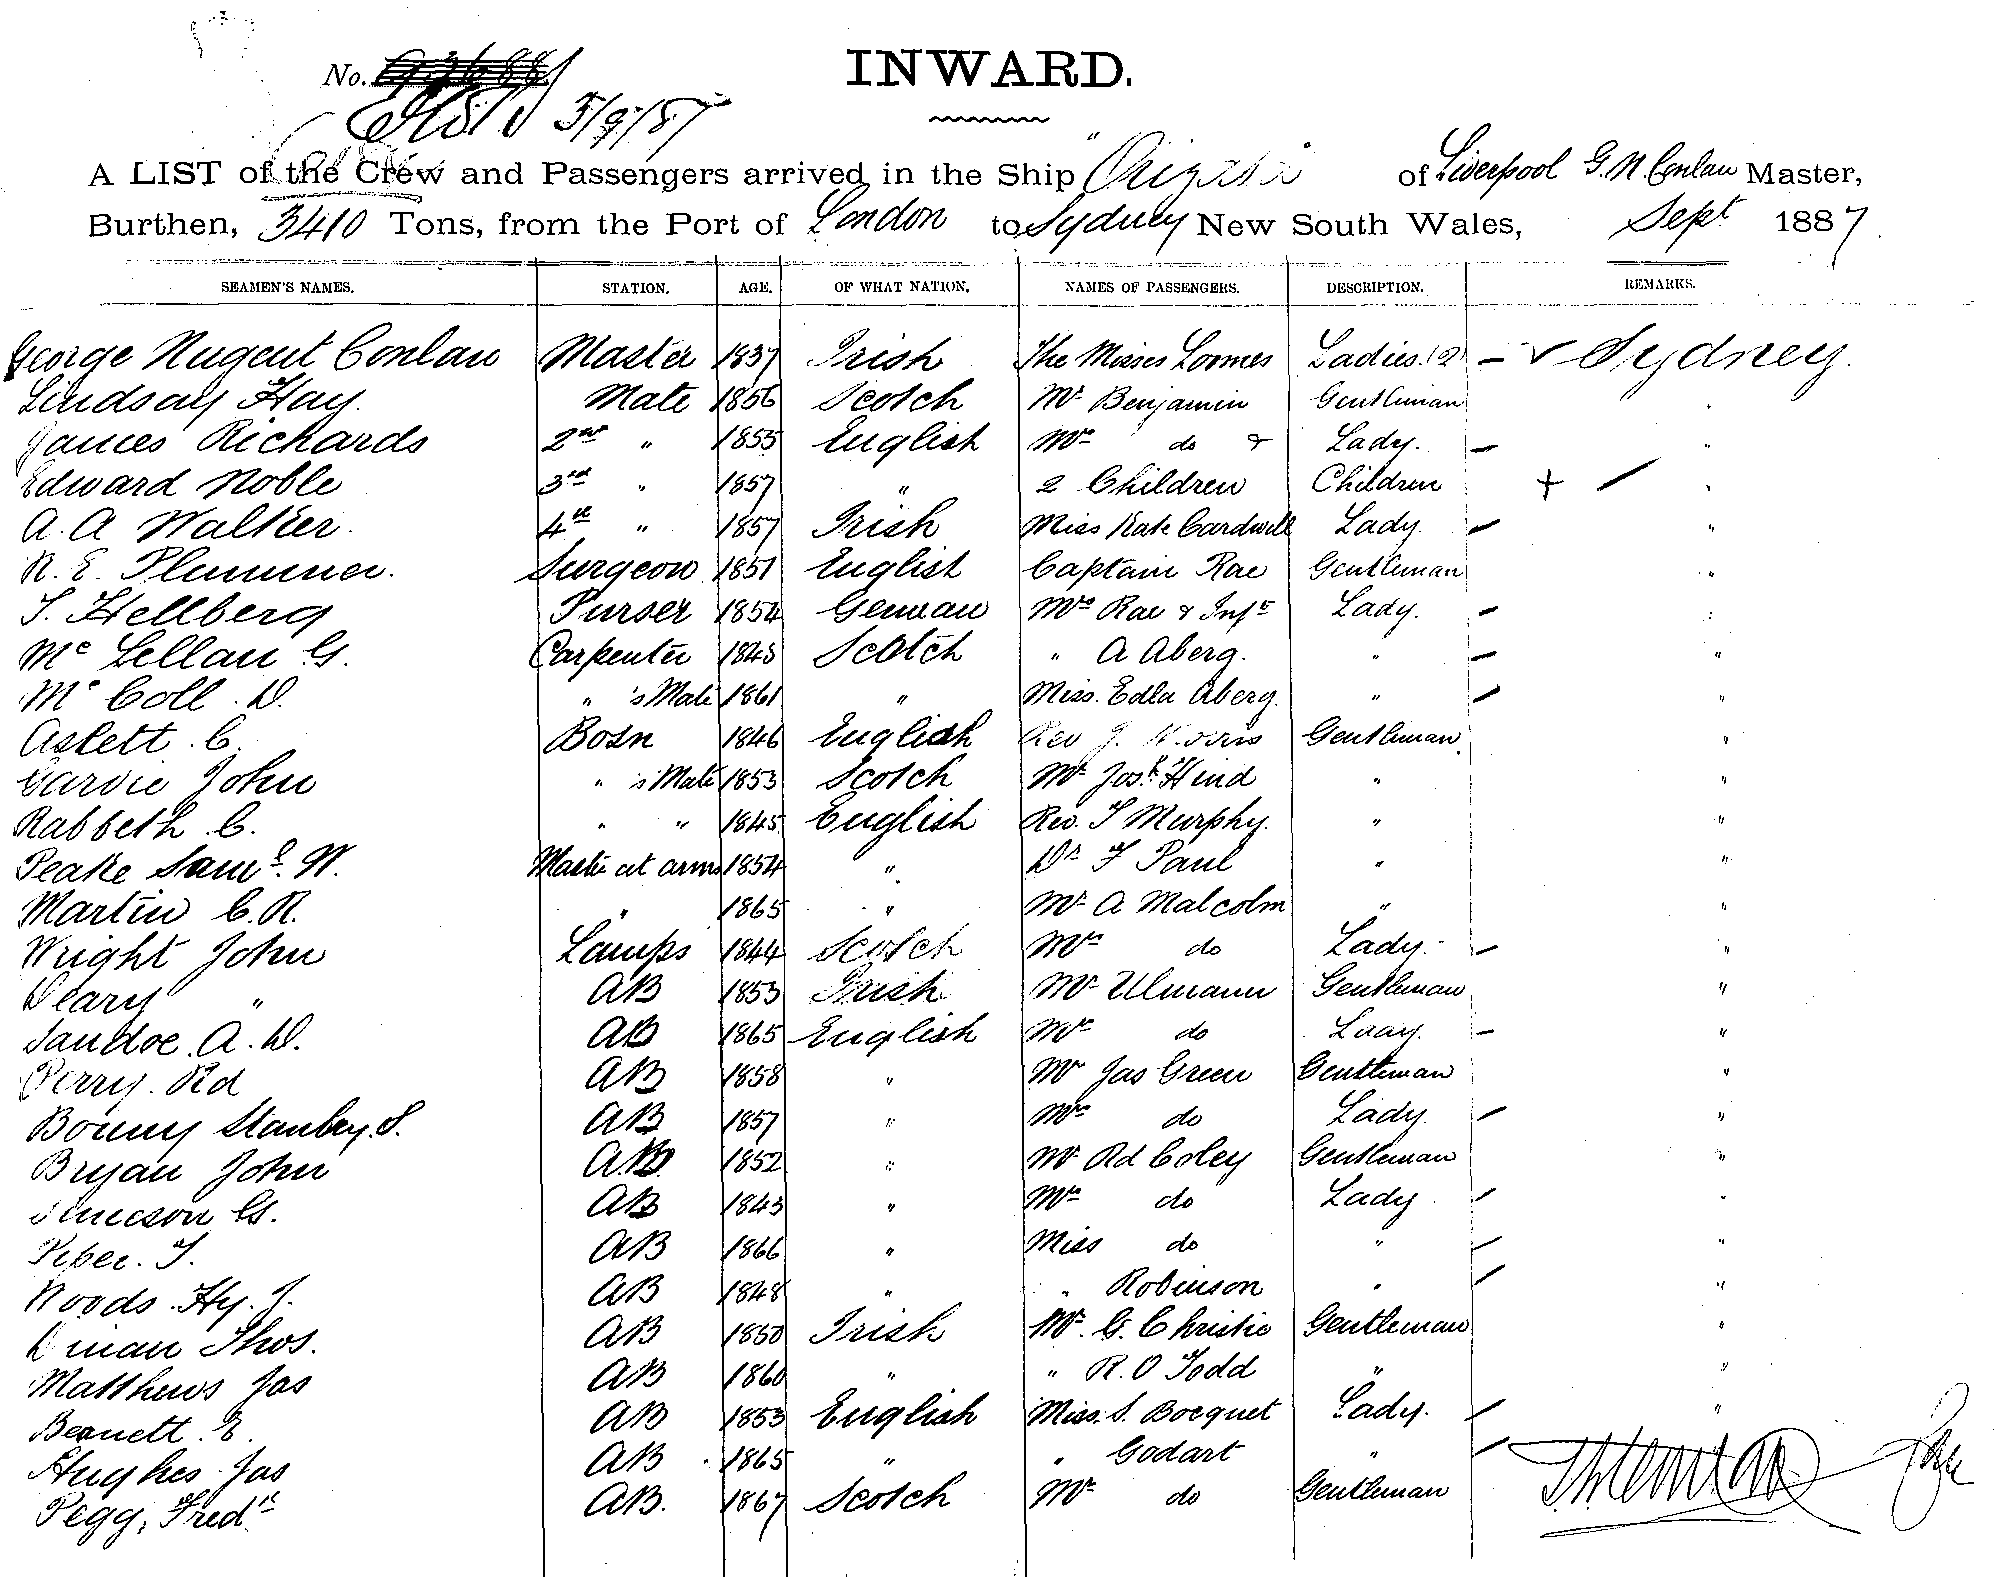 INWARD.
No.
5/9/87
A LIST of the Crew and Passengers arrived in the Ship " of Liverpool G. N. Conlan Master,
Burthen, 3410 Tons, from the Port of London to Sydney New South Wales, Sept 1887.
SEAMEN'S NAMES. STATION. AGE. OF WHAT NATION. NAMES OF PASSENGERS. DESCRIPTION. REMARKS.
George Nugent Conlan Master 1837 Irish The Misses Loomes Ladies (2) - ✓ Sydney.
Lindsay Hay. Mate 1856 Scotch Mr Benjamin Gentleman "
James Richards 2nd " 1855 English Mrs do & Lady. "
Edward Noble 3rd " 1857 " 2 Children Children + "
A. A Walker. 4th " 1857 Irish Miss Kate Cardwell Lady "
R. E. Plummer. Surgeon 1851 English Captain Rae Gentleman "
S. Hellberg Purser 1854 German Mrs Rae & Inft Lady. "
Mc Lellan G. Carpenter 1845 Scotch " A Aberg. " "
Mc Coll . D. " 's Mate 1861 " Miss. Edla Aberg. " "
Aslett . C. Bosn 1846 English Rev J. Gentleman "
Garvie John " 's Mate 1853 Scotch Mr Josh Hind " "
Rabbeth . C. " " 1845 English Rev. T Murphy. " "
Peake Saml. W. Master at arms 1854 " Dr F Paul " "
Martin C. R. " 1865 " Mr A Malcolm " "
Wright John Lamps 1844 Scotch Mrs do Lady. "
Deary " AB 1853 Irish Mr Ulmann Gentleman "
Sandoe. A. D. AB 1865 English Mrs do Lady. "
Perry. Rd AB 1858 " Mr Jas Green Gentleman "
Bonny Stanley. S. AB 1857 " Mrs do Lady "
Bryan John AB 1852 " Mr Rd Coley Gentleman "
G. AB 1843 " Mrs do Lady "
T. AB 1866 " Miss do " "
Woods. Hy. J. AB 1848 " " Robinson " "
Thos. AB 1850 Irish Mr. G. Christie Gentleman "
Matthews Jas AB 1860 " " R. O Todd " "
Bennett . E. AB 1853 English Miss. S. Bocquet Lady. "
Hughes Jas AB 1865 " " Godart "
Pegg, Fredk AB. 1867 Scotch Mr do Gentleman